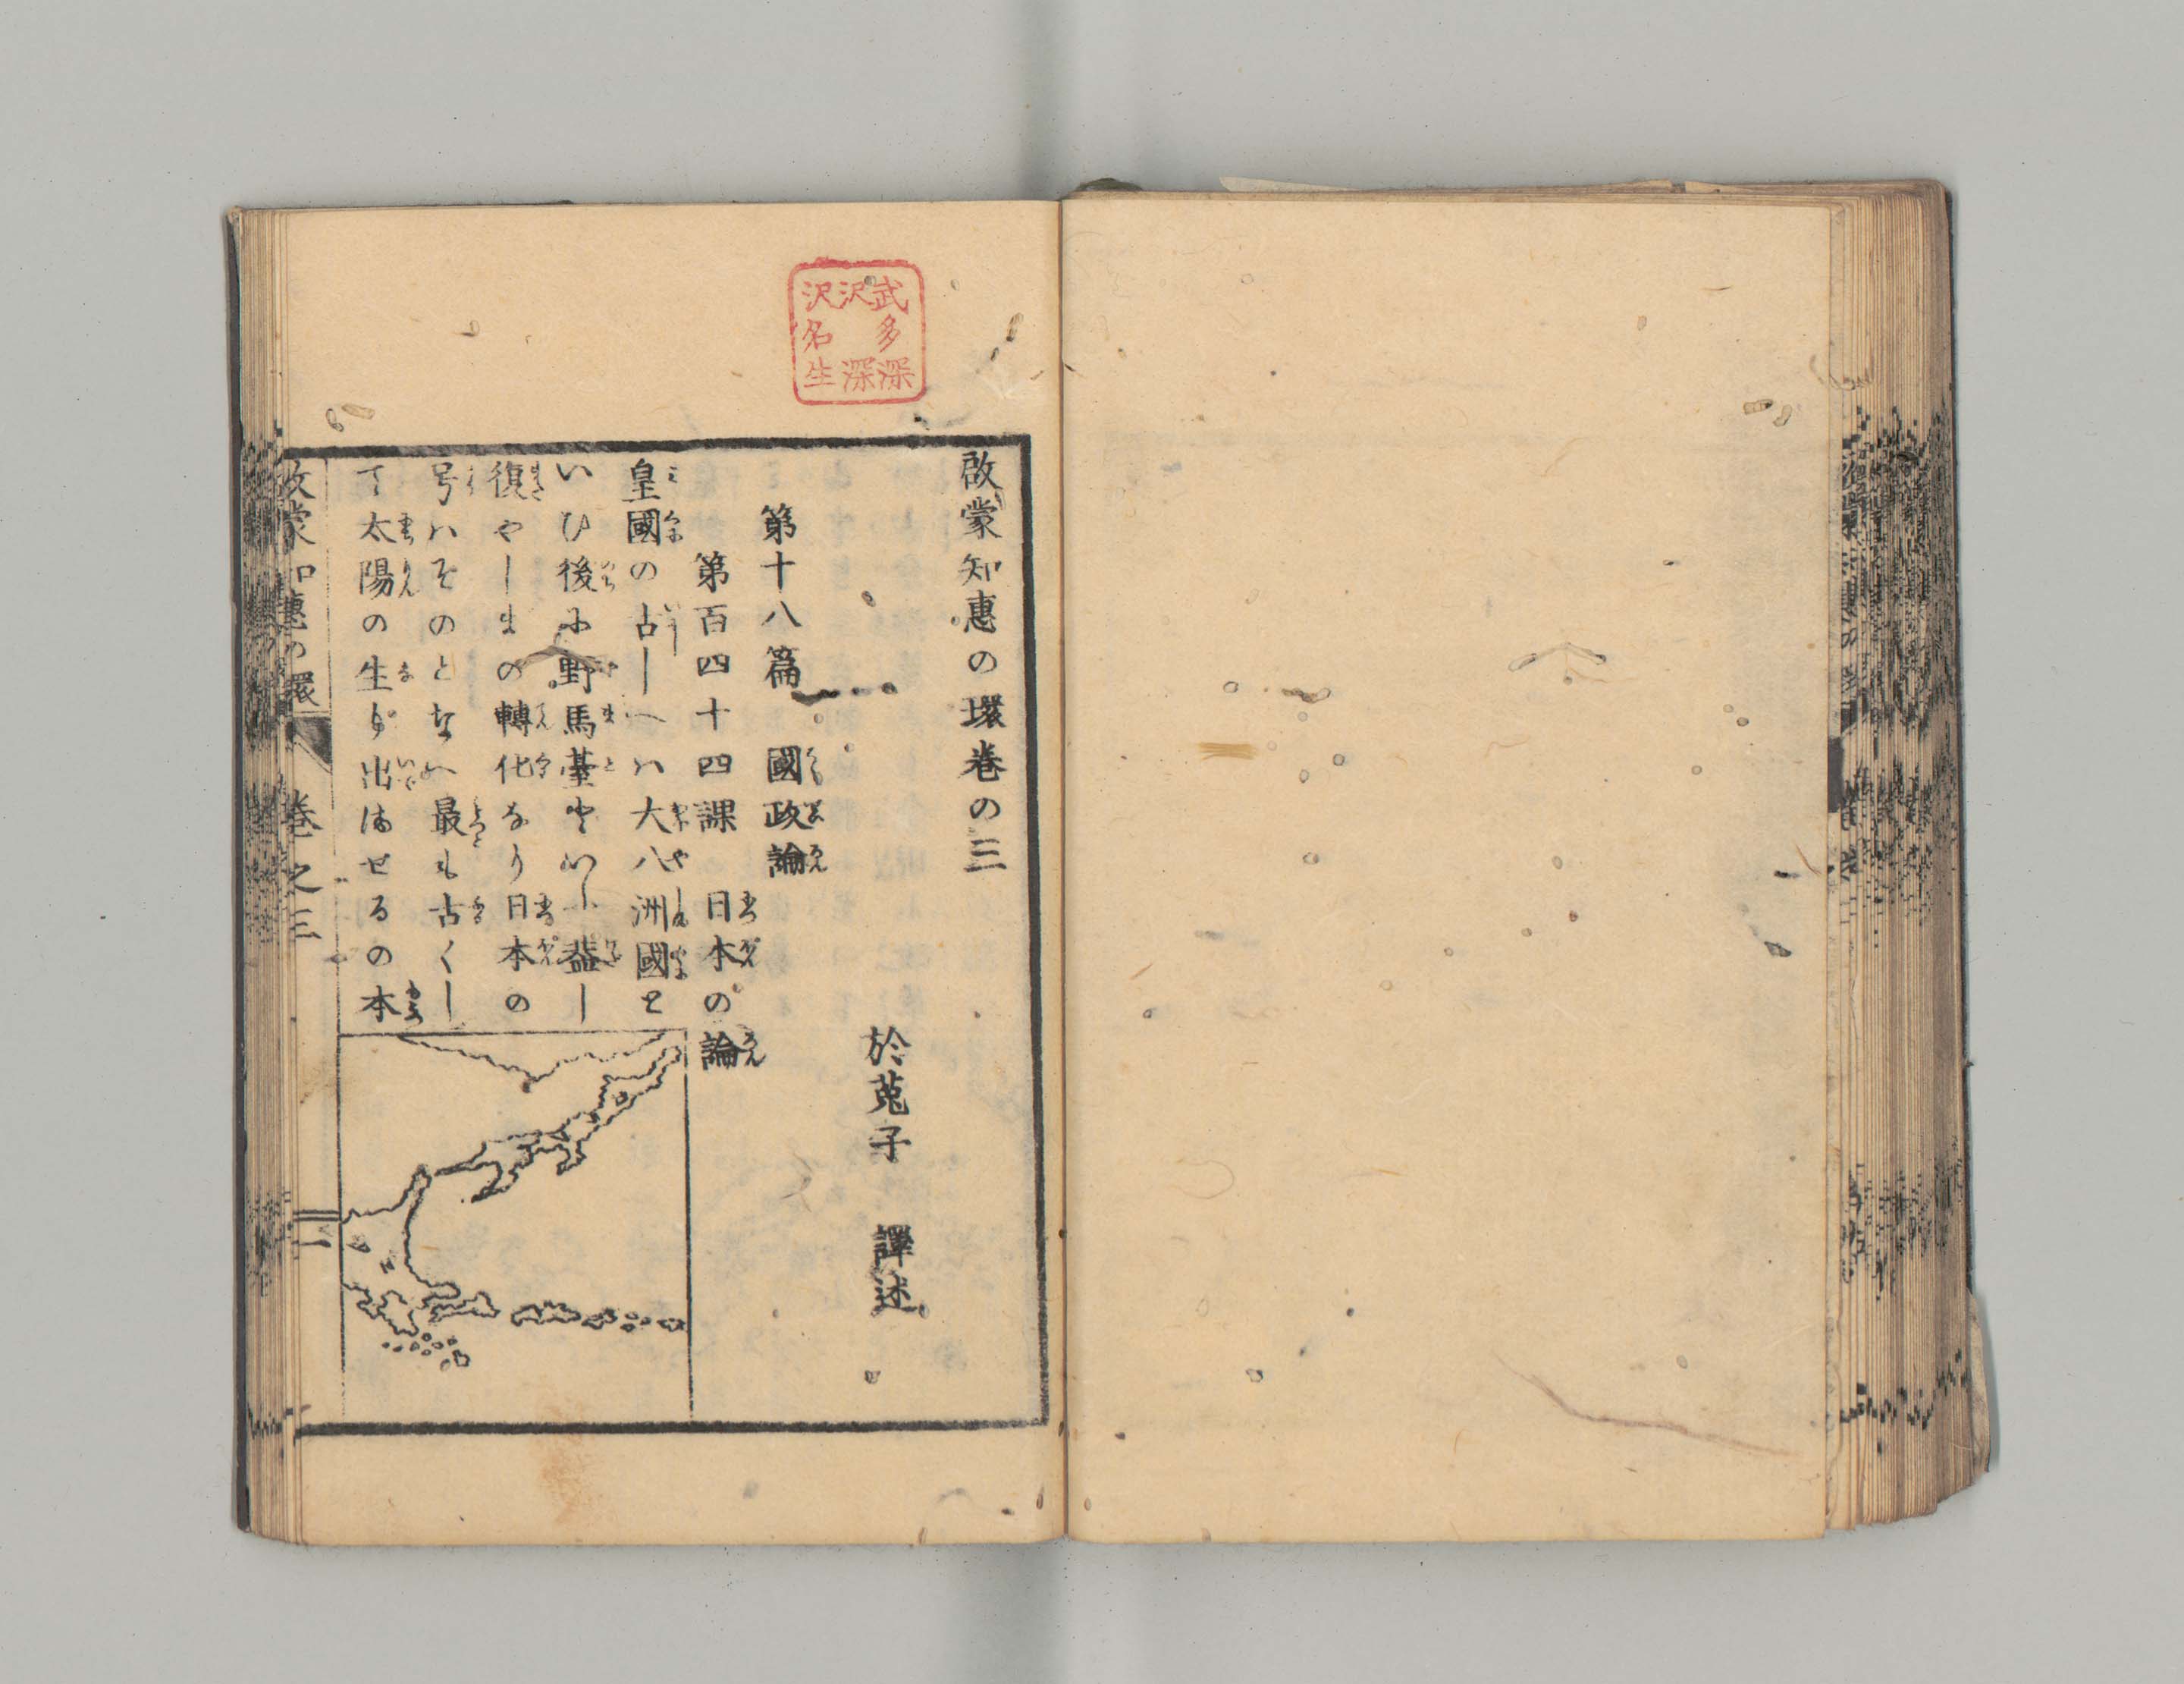 武多深
沢深
沢名生
啟蒙知惠の環卷の三
於菟子 譯述
第十八篇 國政論
第百四十四課 日本の論
皇國の古しへハ大八洲國と
いひ後に野馬臺といふ益し
復やしまの轉化なり日本の
号ハそのとなへ最も古くし
て太陽の生り出ませるの本
啟蒙知惠の環 卷之三 一